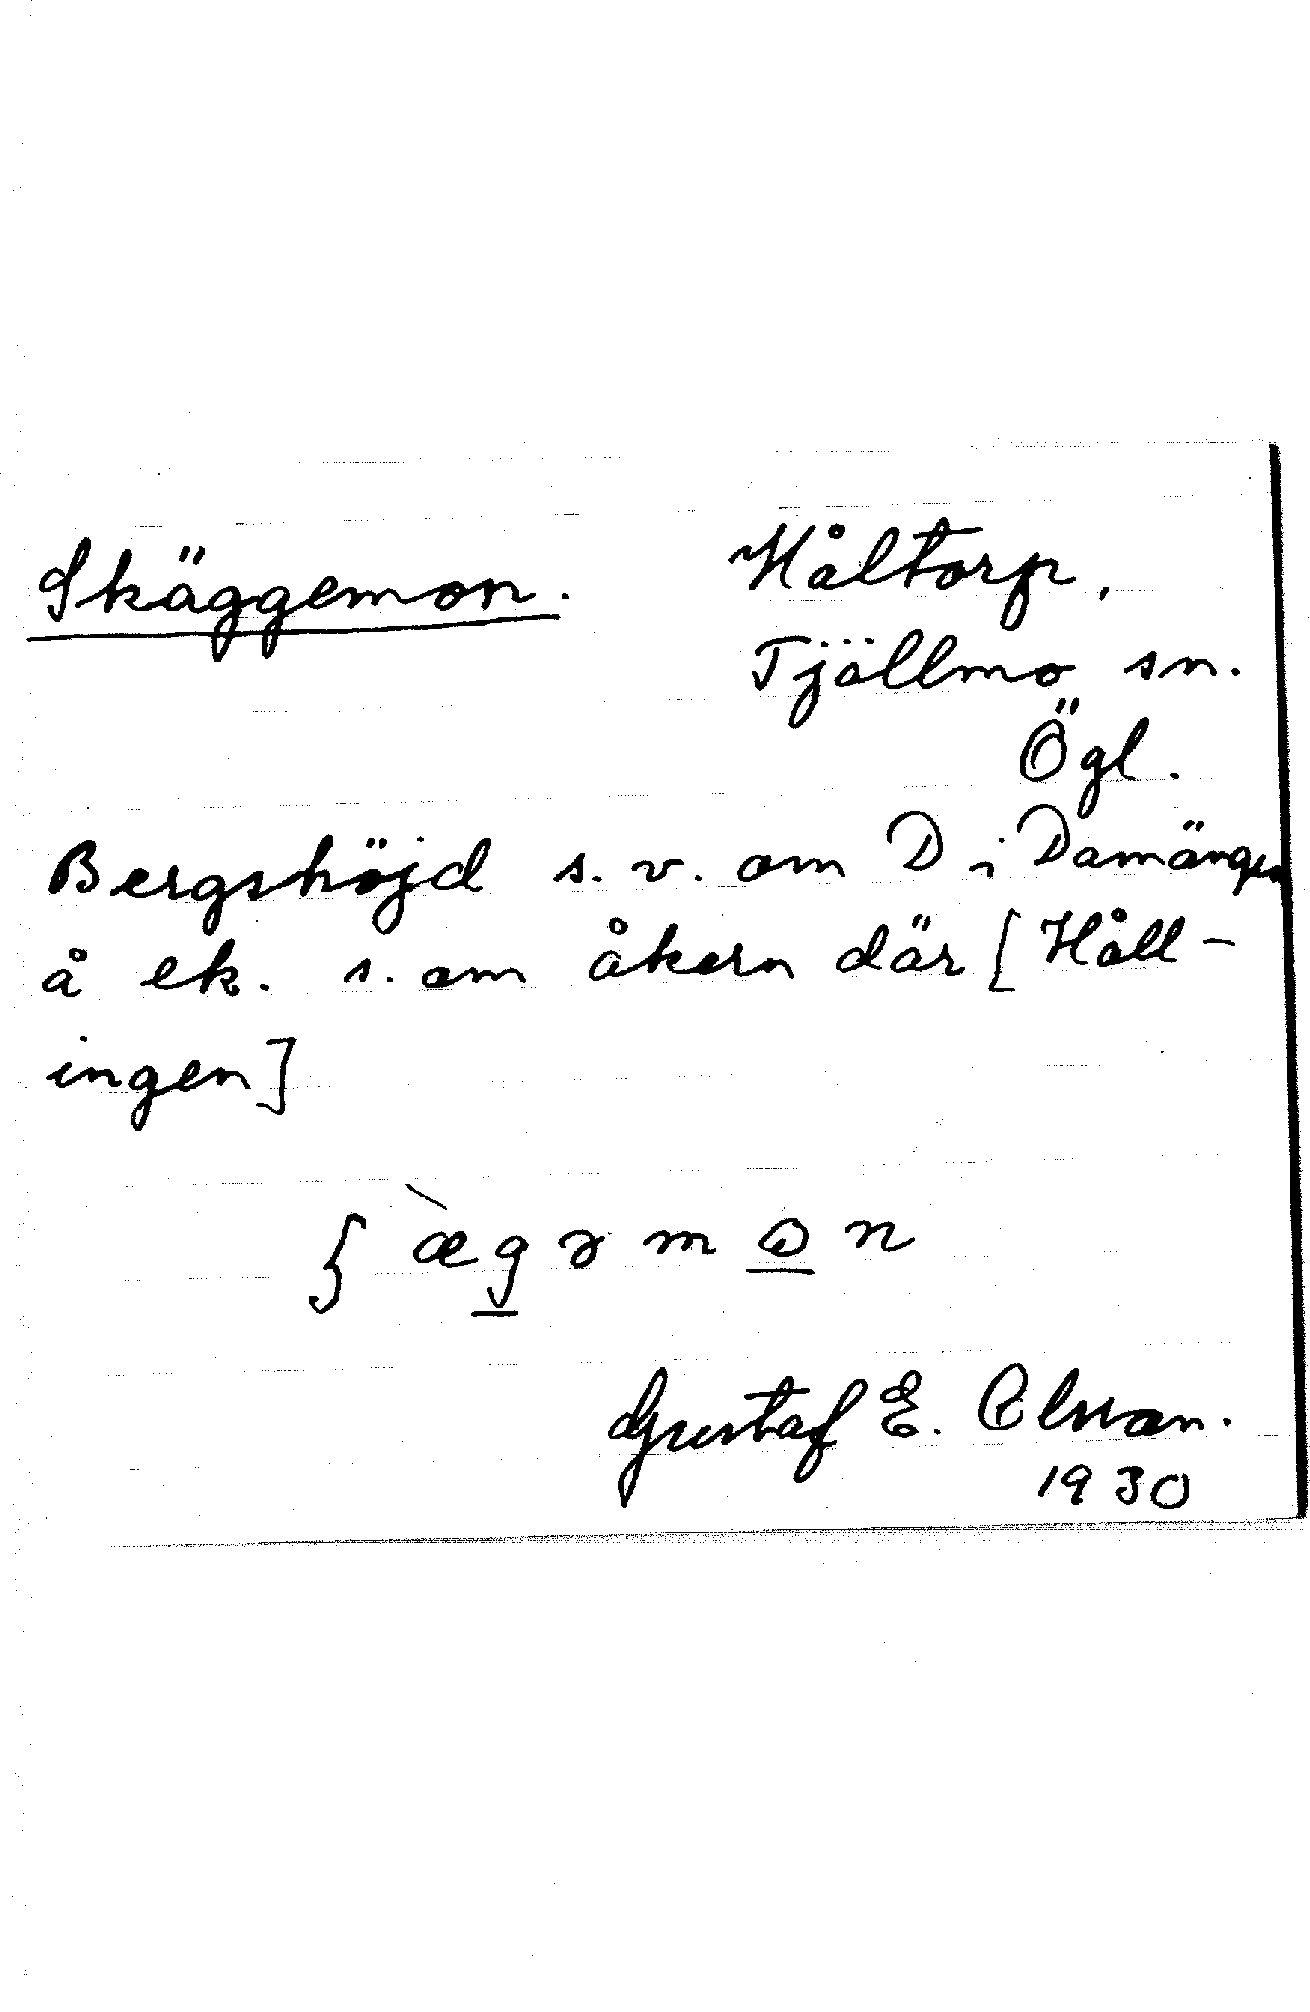 Skäggemon. Håltorp,
Tjällmo sn.
Ögl.
Bergshöjd s. v. om D i Damängen
å ek. s. om åkern där [Håll-
ingen]
ʃ æ̀g̲əmɷ̲n
Gustaf E. Olsson.
1930